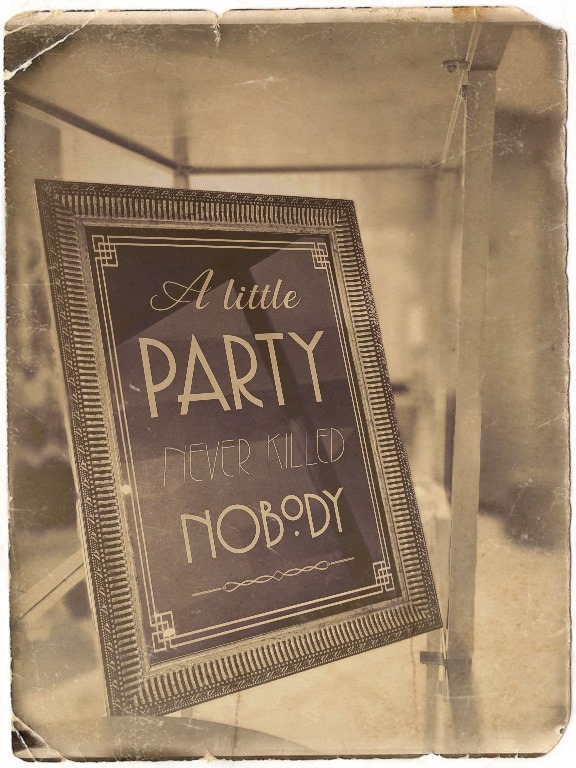 A little
PARTY
NEVER KILLED
NOBODY